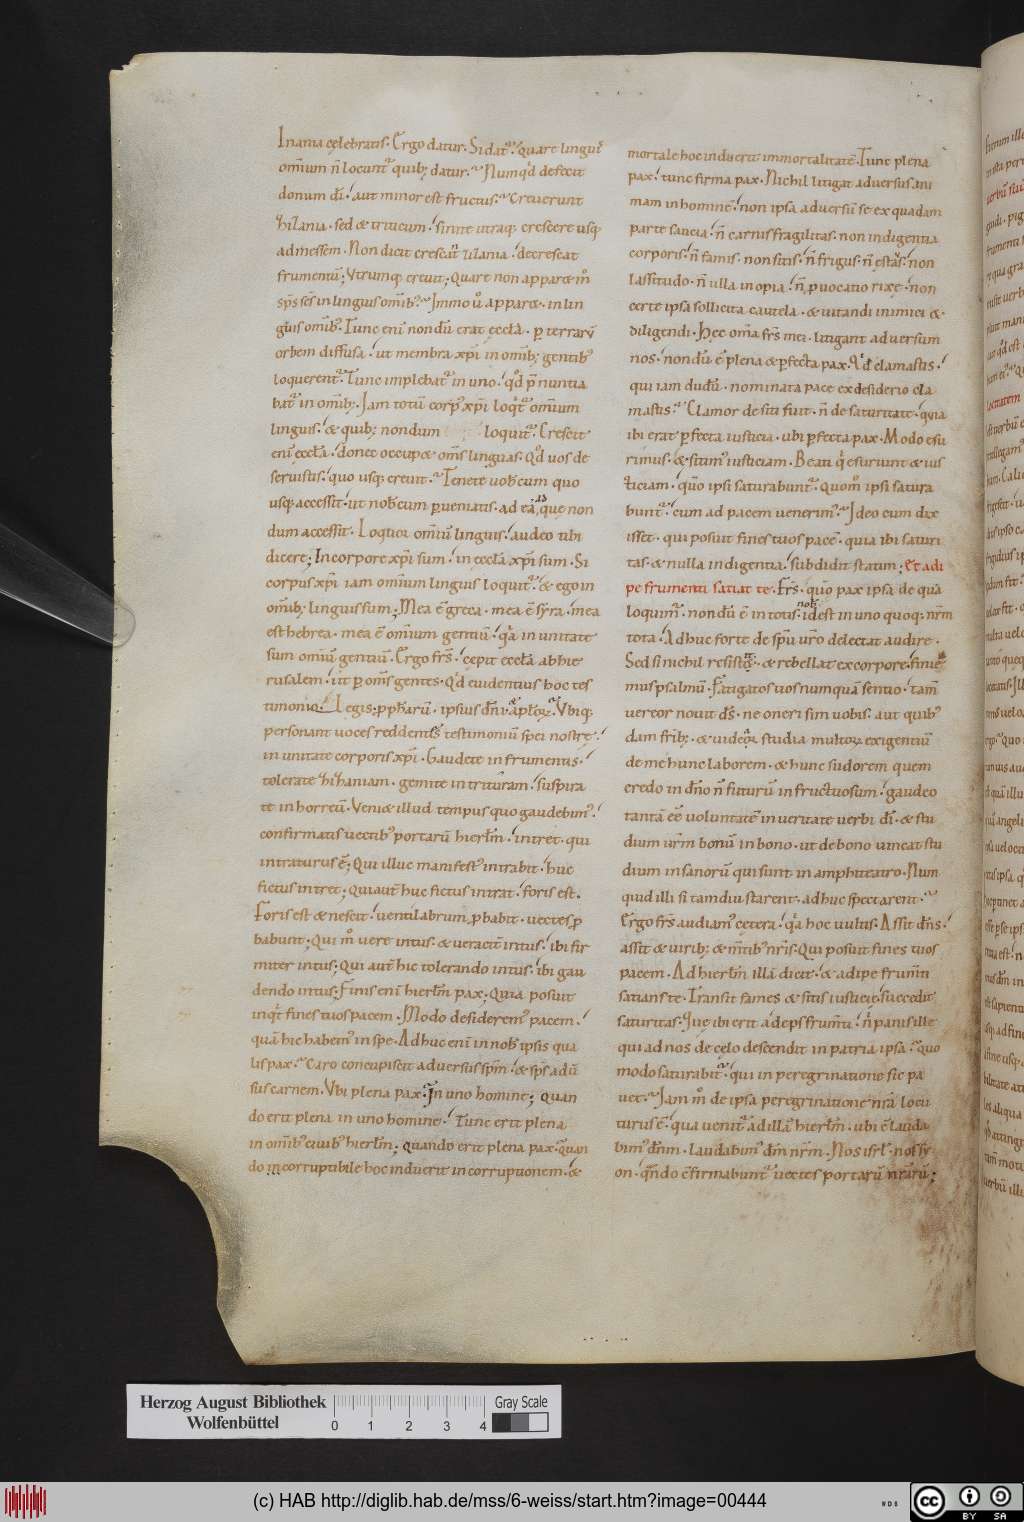 Inania celebratis. Ergo datur. Si dat᷑. quare lingu᷑
omniū n̄ locunt᷑ quib; datur. Numqd defecit
donum dī. aut minor est fructus. Creuerunt
zizania. sed & triticum. sinite utraq; crescere usq;
ad messem. Non dicit crescat zizania. decrescat
frumentū; Vtrunq; creuit; Quare non apparet m̊
sp̄s sc̄s in linguis omīb;. Immo ů apparet. in lin
guis omib;. Tunc enī nondū erat eccłā. ꝑ terrarū
orbem diffusa. ut membra xp̄i in omīb; gentib;
loquerent᷑. Tunc implebat᷑ in uno. qd̄ p̄nuntia
bat᷑ in omīb;. Iam totū corp; xp̄i loqt᷑ omnium
linguis. & quib; nondum loquit᷑. Crescit
enī eccłā. donec occupet om̄s linguas. Qd̄ uos de
seruistis. quo usq; creuit. Tenete uobcum quo
usq; accessit. ut nobcum perueniatis. ad eā que non
dum accessit. Loquor omniū linguis. audeo tibi
dicere; In corpore xp̄i sum. in eccłā xp̄i sum. Si
corpus xp̄i iam omnium linguis loquit᷑. & ego in
omīb; linguis sum; Mea ē greca. mea ē syra. mea
est hebrea. mea ē omnium gentiū. qa in unitate
sum omniū gentiū. Ergo frs̄. cepit eccłā ab hie
rusalem. ut ꝑ om̄s gentes. Qd̄ euidentius hoc tes
timonio. Legis. ꝓphetarū. ipsius dn̄i. aplōꝝ. Vbiq;
personant uoces reddentes testimoniū spei nostre.
in unitate corporis xp̄i. Gaudete in frumentis.
tolerate zizaniam. gemite in trituram. suspira
te in horreū. Veniet illud tempus quo gaudebim;.
confirmatis uectib; portarū hierlm̄. intret. qui
intraturus ē; Qui illuc manifest; intrabit. huc
fictus intret; Qui aut̄ huc fictus intrat. foris est.
Foris est & nescit. uentilabrum ꝓbabit. uectes ꝓ
babunt; Qui m̊ uere intus. & ueracit intus. ibi fir
miter intus; Qui aut̄ hic tolerando intus. ibi gau
dendo intus; Finis enī hierlm̄ pax; Quia posuit
inqt fines tuos pacem. Modo desiderem; pacem.
quā hic habem; in spe. Adhuc enī in nob ipsis qua
lis pax. Caro concupiscit aduersus spm̄. & sps̄ adū
sus carnem. Vbi plena pax. In uno homine; Quan
do erit plena in uno homine. Tunc erit plena
in omīb; ciuib; hierlm̄; Quando erit plena pax. Quan
do incorruptibile hoc induerit incorruptionem. &
mortale hoc induerit immortalitatē. Tunc plena
pax. tunc firma pax. Nichil litigat aduersus ani
mam in hominē. non ipsa aduersū se ex quadam
parte saucia. n̄ carnis fragilitas. non indigentia
corporis. n̄ famis. non sitis. n̄ frigus. n̄ estus. non
lassitudo. n̄ ulla inopia. n̄ ꝓuocatio rixe. non
certe ipsa sollicita cautela. & uitandi inimici &
diligendi. Hec om̄a frs̄ mei. litigant aduersum
nos. nondū ē plena & ꝑfecta pax. Qd̄ clamastis.
qui iam dudū. nominata pace ex desiderio cla
mastis. Clamor de siti fuit. n̄ de saturitate. quia
ibi erat ꝑfecta iusticia. ubi ꝑfecta pax. Modo esu
rimus. & sitim; iusticiam. Beati qi esuriunt & ius
ticiam. quo ipsi saturabunt᷑. Quom̊ ipsi satura
bunt᷑. cum ad pacem uenerim;. Ideo cum dix
isset. qui posuit fines tuos pacē. quia ibi saturi
tas. & nulla indigentia. subdidit statim; Et adi
pe frumenti satiat te. Frs̄. quo pax ipsa de qua
loquim᷑. nondū ē in totis nob. idest in uno quoq; nrm̄
tota. Adhuc forte de spū uro delectat audire.
Sed si nichil resistat. & rebellat ex corpore. finie
mus psalmū. Fatigatos uos numquā sentio. tam̄
uereor nouit ds̄. ne oneri sim uobis. aut quib;
dam frib;. & uideor studia multoꝝ exigentiū
de me hunc laborem. & hunc sudorem quem
credo in dn̄o n̄ futurū infructuosum. gaudeo
tantā ēē uoluntatē in ueritate uerbi dī. & stu
dium urm̄ bonū in bono. ut de bono uincat stu
dium insanorū qui sunt in amphiteatro. Num
quid illi si tamdiu starent. adhuc spectarent.
Ergo frs̄ audiam; cetera. qa hoc uultis. Assit dn̄s.
assit & uirib; & mtib; nris. Qui posuit fines tuos
pacem. Ad hierlm̄ illā dicit. & adipe frumti
satians te. Transit fames & sitis iusticie. succedit
saturitas. Que ibi erit adeps frumti. n̄ panis ille
qui ad nos de celo descendit in patria ipsa. Quo
modo saturabit. qui in peregrinatione sic pa
uet. Iam m̊ de ipsa peregrinatione nr̄a locu
turus ē. qua uenit᷑ ad illā hierlm̄. ubi ē lauda
bim; dn̄m. Laudabim; dm̄ nrm̄. Nos isrl̄. nos sy
on. qn̄do cfirmabunt᷑ uectes portarū nr̄arū;
Herzog August Bibliothek
Wolfenbüttel
0 1 2 3 4
Gray Scale
(c) HAB http://diglib.hab.de/mss/6-weiss/start.htm?image=00444
WDB
cc
BY SA